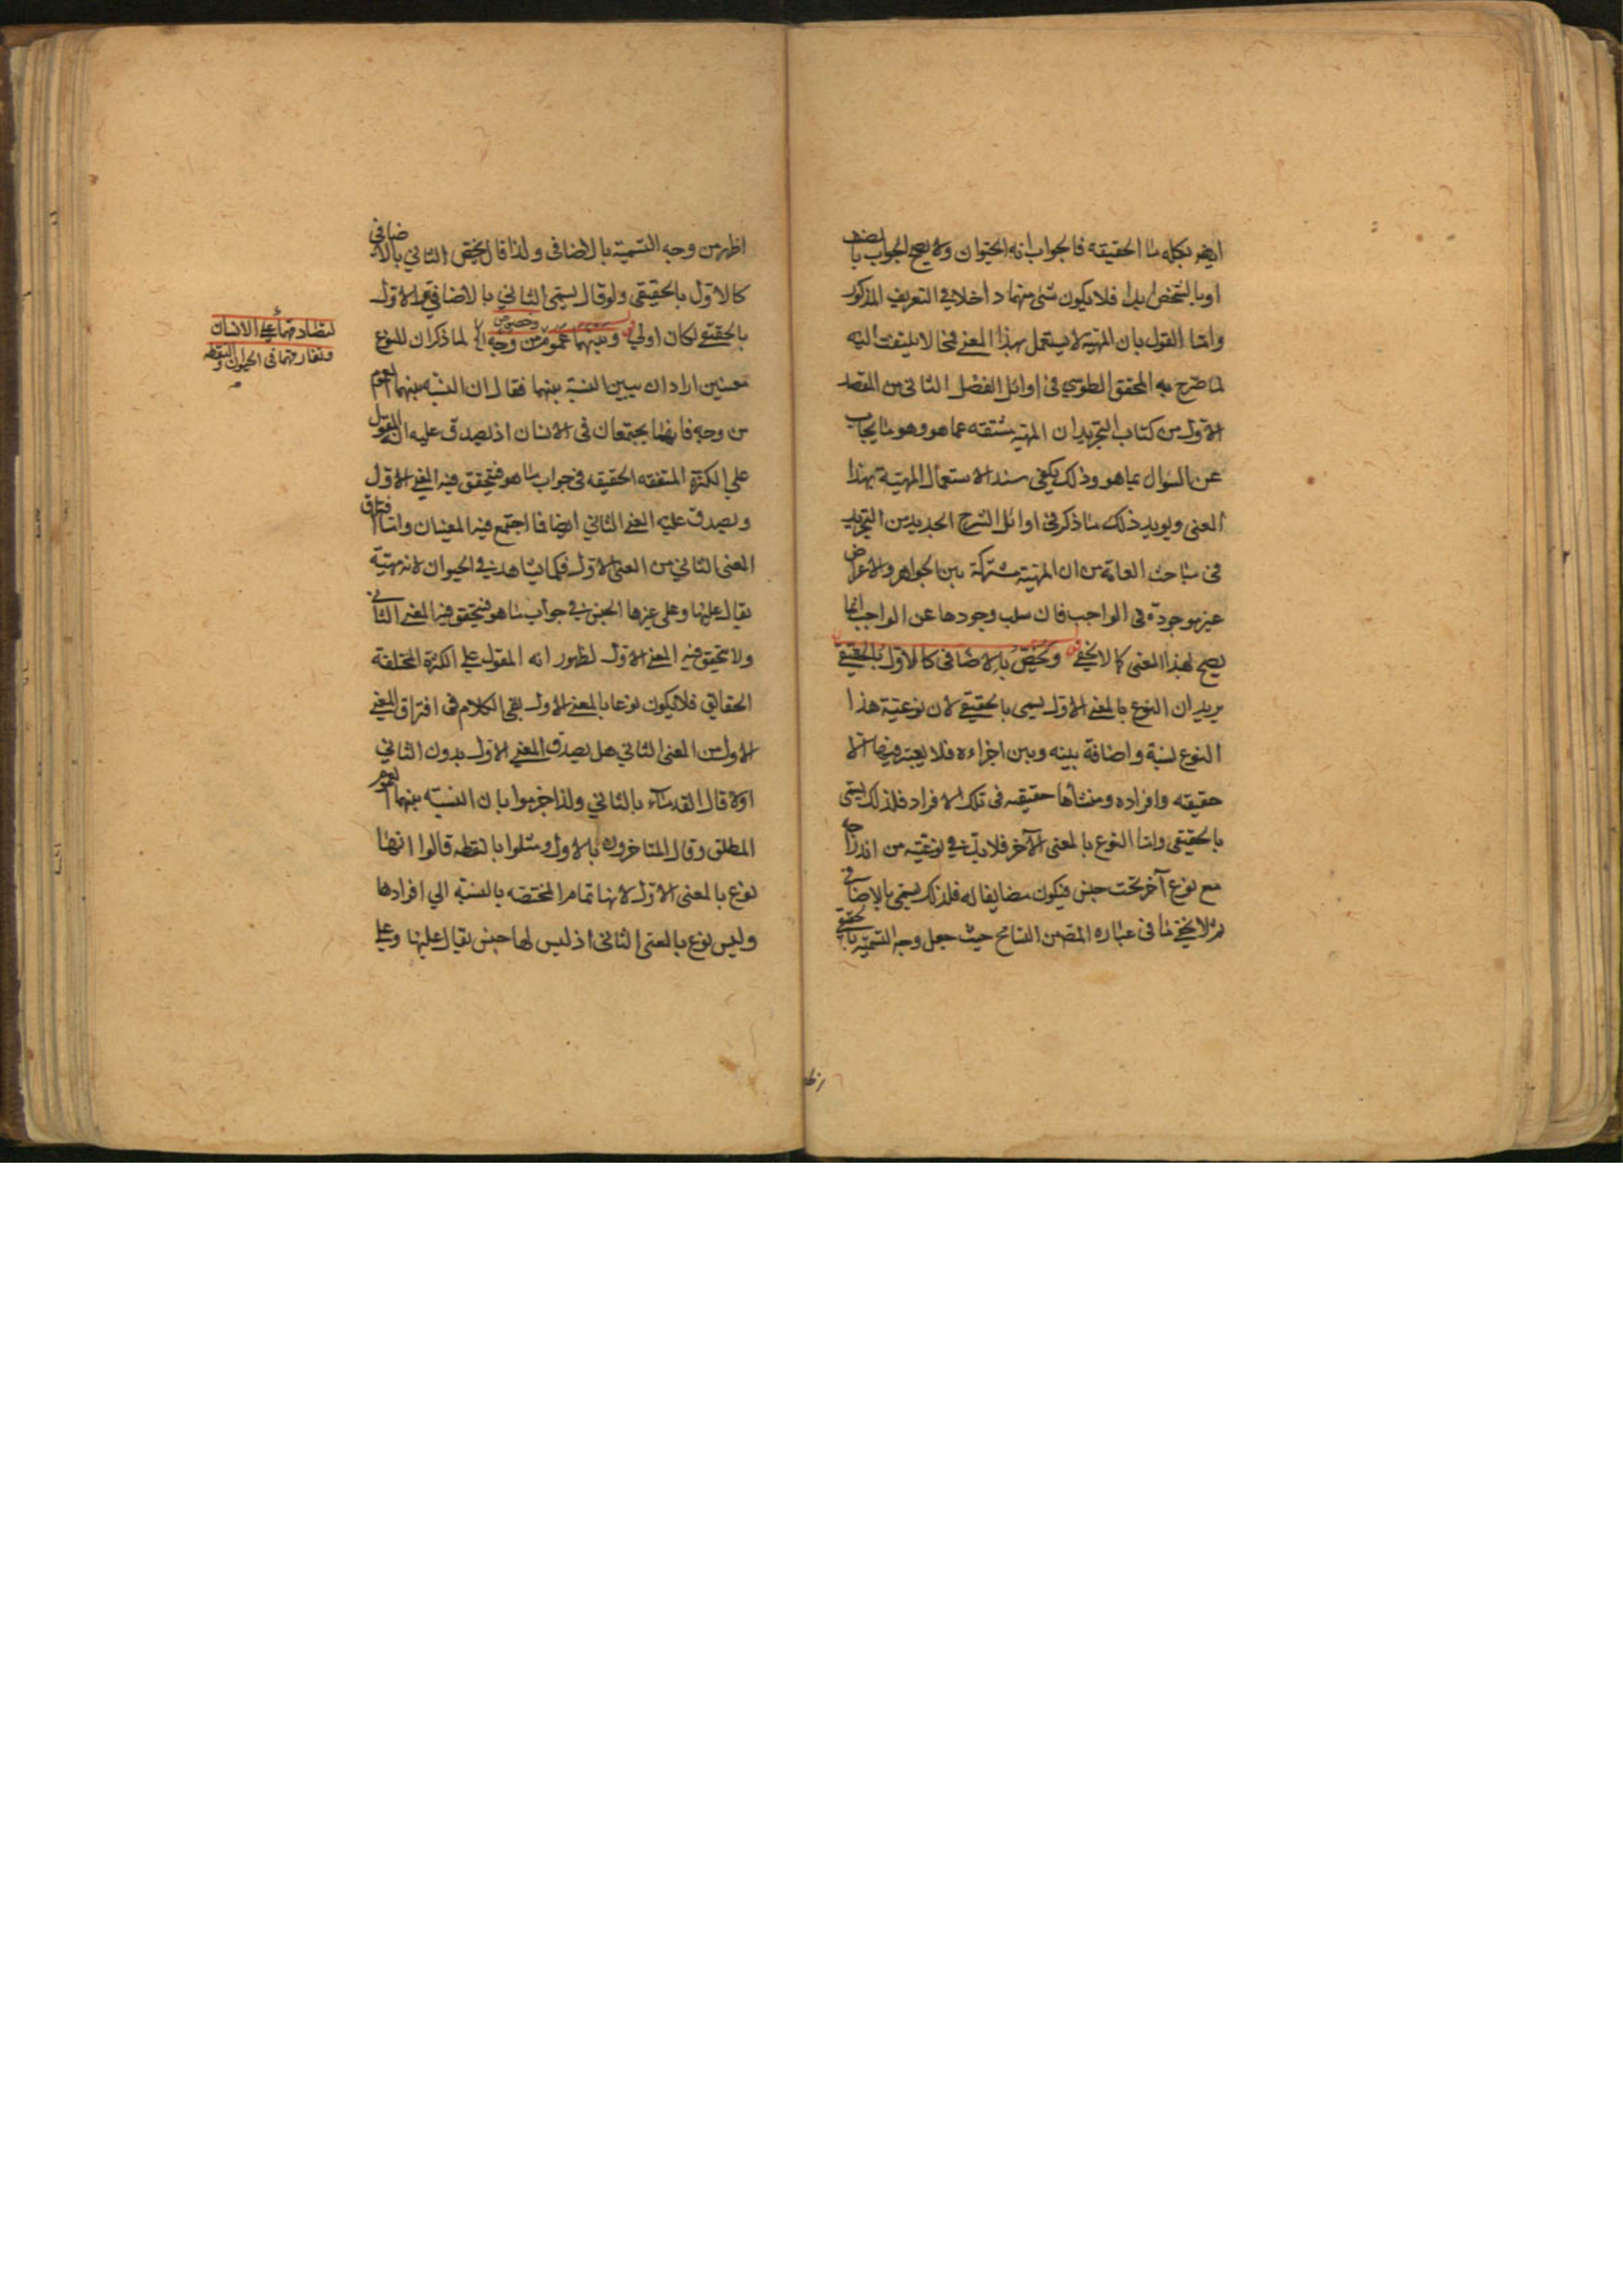 ايضا بكلمة ما الحقيقة فالجواب انه الحيوان ولا يصح الجواب بالصنف
او بالشخص ابدا فلا يكون شئ منهما داخلا في التعريف المذكور
واما القول بان المهية لا يستعمل بهذا المعنى فمما لا يلتفت اليه
لما صرح به المحقق الطوسي في اوائل الفصل الثاني من المقصد
الاول من كتاب التجريد ان المهية مشتقه عما هو وهو ما يجاب
عن السؤال عما هو وذلك يكفي سندا لاستعمال المهية بهذا
المعنى ويويد ذلك ما ذكر في اوائل الشرح الجديد من التجريد
في مباحث العامة من ان المهية مشتركة بين الجواهر والاعراض
غير موجودة في الواجب فان سلب وجودها عن الواجب انما
يصح لهذا المعنى كما لا يخفى ويختص بالاضافى كالاول بالحقيقي
يريد ان النوع بالمعنى الاول يسمى بالحقيقي لان نوعية هذا
النوع نسبة واضافة بينه وبين افراده فلا يعتبر فيها الا
حقيقه وافراده ومنشأها حقيقه في تلك الافراد فلذلك يسمى
بالحقيقي واما النوع بالمعنى الآخر فلابد في نوعيته من اندراجه
مع نوع آخر تحت جنس فيكون مضايفا له فلذلك يسمى بالاضافي
ثم لا يخفى ما في عباره المصـ من التسامح حيث جعل وجه التسمية بالحقيقي
اظهر
اظهر من وجه التسمية بالاضافى ولذا قال يختص الثاني بالاضافي
كالاول بالحقيقي ولو قال يسمى الثاني بالاضافي كالاول
بالحقيقي لكان اولى وبينهما عموم وخصوص من وجه الخ لما ذكر ان للنوع
معنيين اراد ان يبين النسبة بينهما فقال ان النسبه بينهما العموم
من وجه فانهما يجتمعان في الانسان اذ يصدق عليه انه المقول
على الكثرة المتفقه الحقيقه في جواب ما هو فيتحقق فيه المعنى الاول
ويصدق عليه المعنى الثاني ايضا فاجتمع فيه المعنيان واما افتراق
المعنى الثاني من المعنى الاول فكما يشاهد في الحيوان لانه مهية
يقال عليها وعلى غيرها الجنس في جواب ما هو فيتحقق فيه المعنى الثاني
ولا يتحقق فيه المعنى الاول لظهور انه المقول على الكثرة المختلفة
الحقائق فلا يكون نوعا بالمعنى الاول بقى الكلام في افتراق المعنى
الاول من المعنى الثاني هل يصدق المعنى الاول بدون الثاني
اولا قال القدماء بالثاني ولذا جزموا بان النسبه بينهما العموم
المطلق وقال المتاخرون بالاول ومثلوا بالنقطه قالوا انها
نوع بالمعنى الاول لانها تمام المختصه بالنسبة الى افرادها
وليس نوع بالمعنى الثاني اذ ليس لها جنس يقال عليها وعلى
لتصادقهما على الانسان
وتفارقهما في الحيوان والنقطه